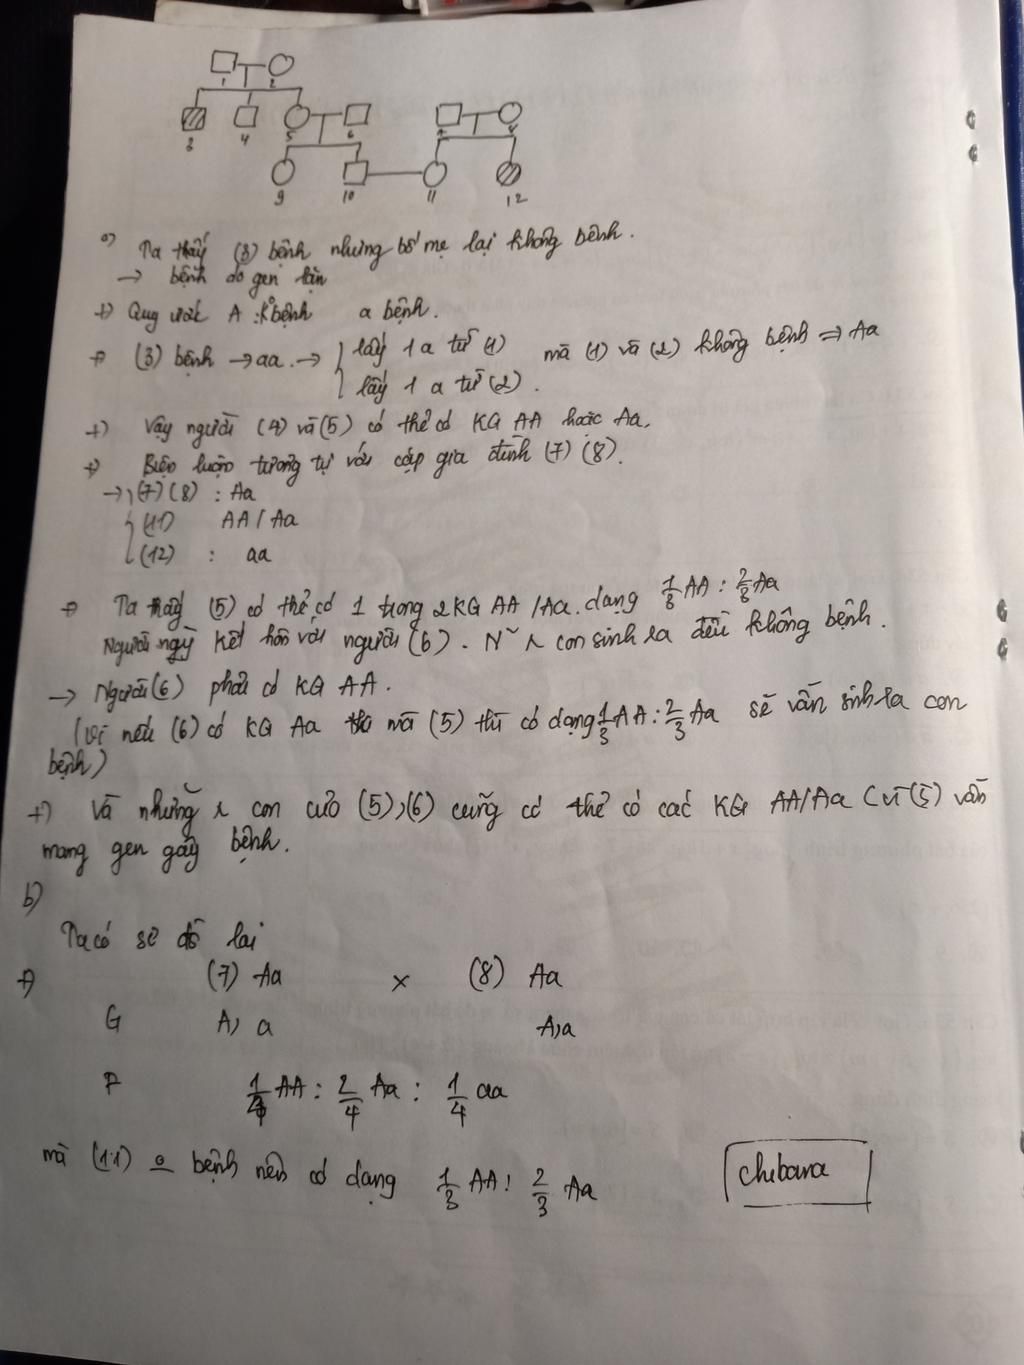 1 2
3 4 5 6 7 8
9 10 11 12
a) Ta thấy (3) bệnh nhưng bố mẹ lại không bệnh.
→ bệnh do gen lặn
+) Quy ước A : k° bệnh a bệnh.
+) (3) bệnh → aa. → { lấy 1 a từ (1) mà (1) và (2) không bệnh ⇒ Aa
lấy 1 a từ (2).
+) Vậy người (4) và (5) có thể có KG AA hoặc Aa.
+) Biện luận tương tự với cặp gia đình (7) (8).
→ { (7) (8) : Aa
(11) AA / Aa
(12) : aa
+) Ta thấy (5) có thể có 1 trong 2 KG AA / Aa. dạng 1/3 AA : 2/3 Aa
Người này kết hôn với người (6). N~ con sinh ra đều không bệnh.
→ Người (6) phải có KG AA.
(Vì nếu (6) có KG Aa mà (5) thì có dạng 1/3 AA : 2/3 Aa sẽ vẫn sinh ra con
bệnh)
+) Và những con của (5), (6) cũng có thể có các KG AA/Aa (vì (5) vẫn
mang gen gây bệnh.
b)
Ta có sơ đồ lai
+) (7) Aa × (8) Aa
G A, a A, a
F 1/4 AA : 2/4 Aa : 1/4 aa
mà (11) bệnh nên có dạng 1/3 AA : 2/3 Aa
chibara